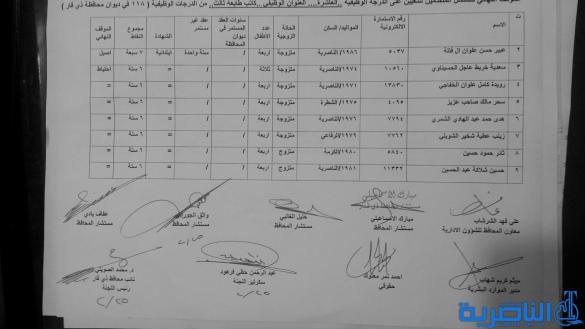 الموقف النهائي للمتقدمين للتعيين على الدرجة الوظيفية ,,العاشرة,,, العنوان الوظيفي ,,كاتب طابعة ثالث,, من الدرجات الوظيفية ( ١١٨ ) في ديوان محافظة ذي قار )
ت رقم الاستمارة الالكترونية المواليد/ السكن الحالة الزوجية عدد الأطفال سنوات العقد المستمر في ديوان المحافظة عقد غير مستمر الشهادة مجموع النقاط الموقف النهائي
٢ عبير حسن علوان ال فتلة ٥٠٣٧ ١٩٨٦/الناصرية متزوجة اربعة / سنة واحدة ابتدائية ٧ سبعة اصيل
٣ سعدية خريبط عاجل الحسيناوي ١٠٥٦٠ ١٩٧٤/الناصرية متزوجة ثلاثة / / = ٦ ستة احتياط
٤ رويدة كامل علوان الخفاجي ١٣٨٣٠ ١٩٧١/الناصرية متزوجة اربعة / / = ٦ ستة =
٥ سحر مالك صاحب عزيز ٤٠٩٥ ١٩٧٥/الشطرة متزوجة اربعة / / = ٦ ستة =
٦ هدى حمد عبد الهادي الشمري ٧٧٩٤ ١٩٧٦/الناصرية متزوجة اربعة / / = ٦ ستة =
٧ زينب عطية شخير الشويلي ٧٧٦٢ ١٩٧٩/الرفاعي متزوجة اربعة / / = ٦ ستة =
٨ ثائر حمود حسين ٥٨٤٠ ١٩٨٠/الكرمة متزوج اربعة / / = ٦ ستة =
٩ حسين شلاكة عبد الحسين ١١٣٣٢ ١٩٨١/الناصرية متزوج اربعة / / = ٦ ستة =
علي فهد الشرشاب مبارك الاسماعيلي خليل الغالبي واثق الجدوراني عفاف بادي
معاون المحافظ للشؤون الادارية مستشار المحافظ مستشار المحافظ مستشار المحافظ مستشار المحافظ
ميثم كريم شهاب احمد نمر عبد الرحمن حنفي فرهود د. محمد الصويلي
مدير الموارد البشرية حقوقي سكرتير اللجنة نائب محافظ ذي قار
رئيس اللجنة
الناصرية